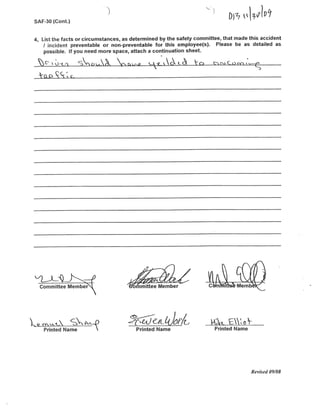 DI3 11/30/09
SAF-30 (Cont.)
4. List the facts or circumstances, as determined by the safety committee, that made this accident
/ incident preventable or non-preventable for this employee(s). Please be as detailed as
possible. If you need more space, attach a continuation sheet.
Driver should have yeilded to oncoming
traffic
Committee Member Committee Member Committee Member
Lemuel Sharp Steven Work Mike Elliot
Printed Name Printed Name Printed Name
Revised 09/08